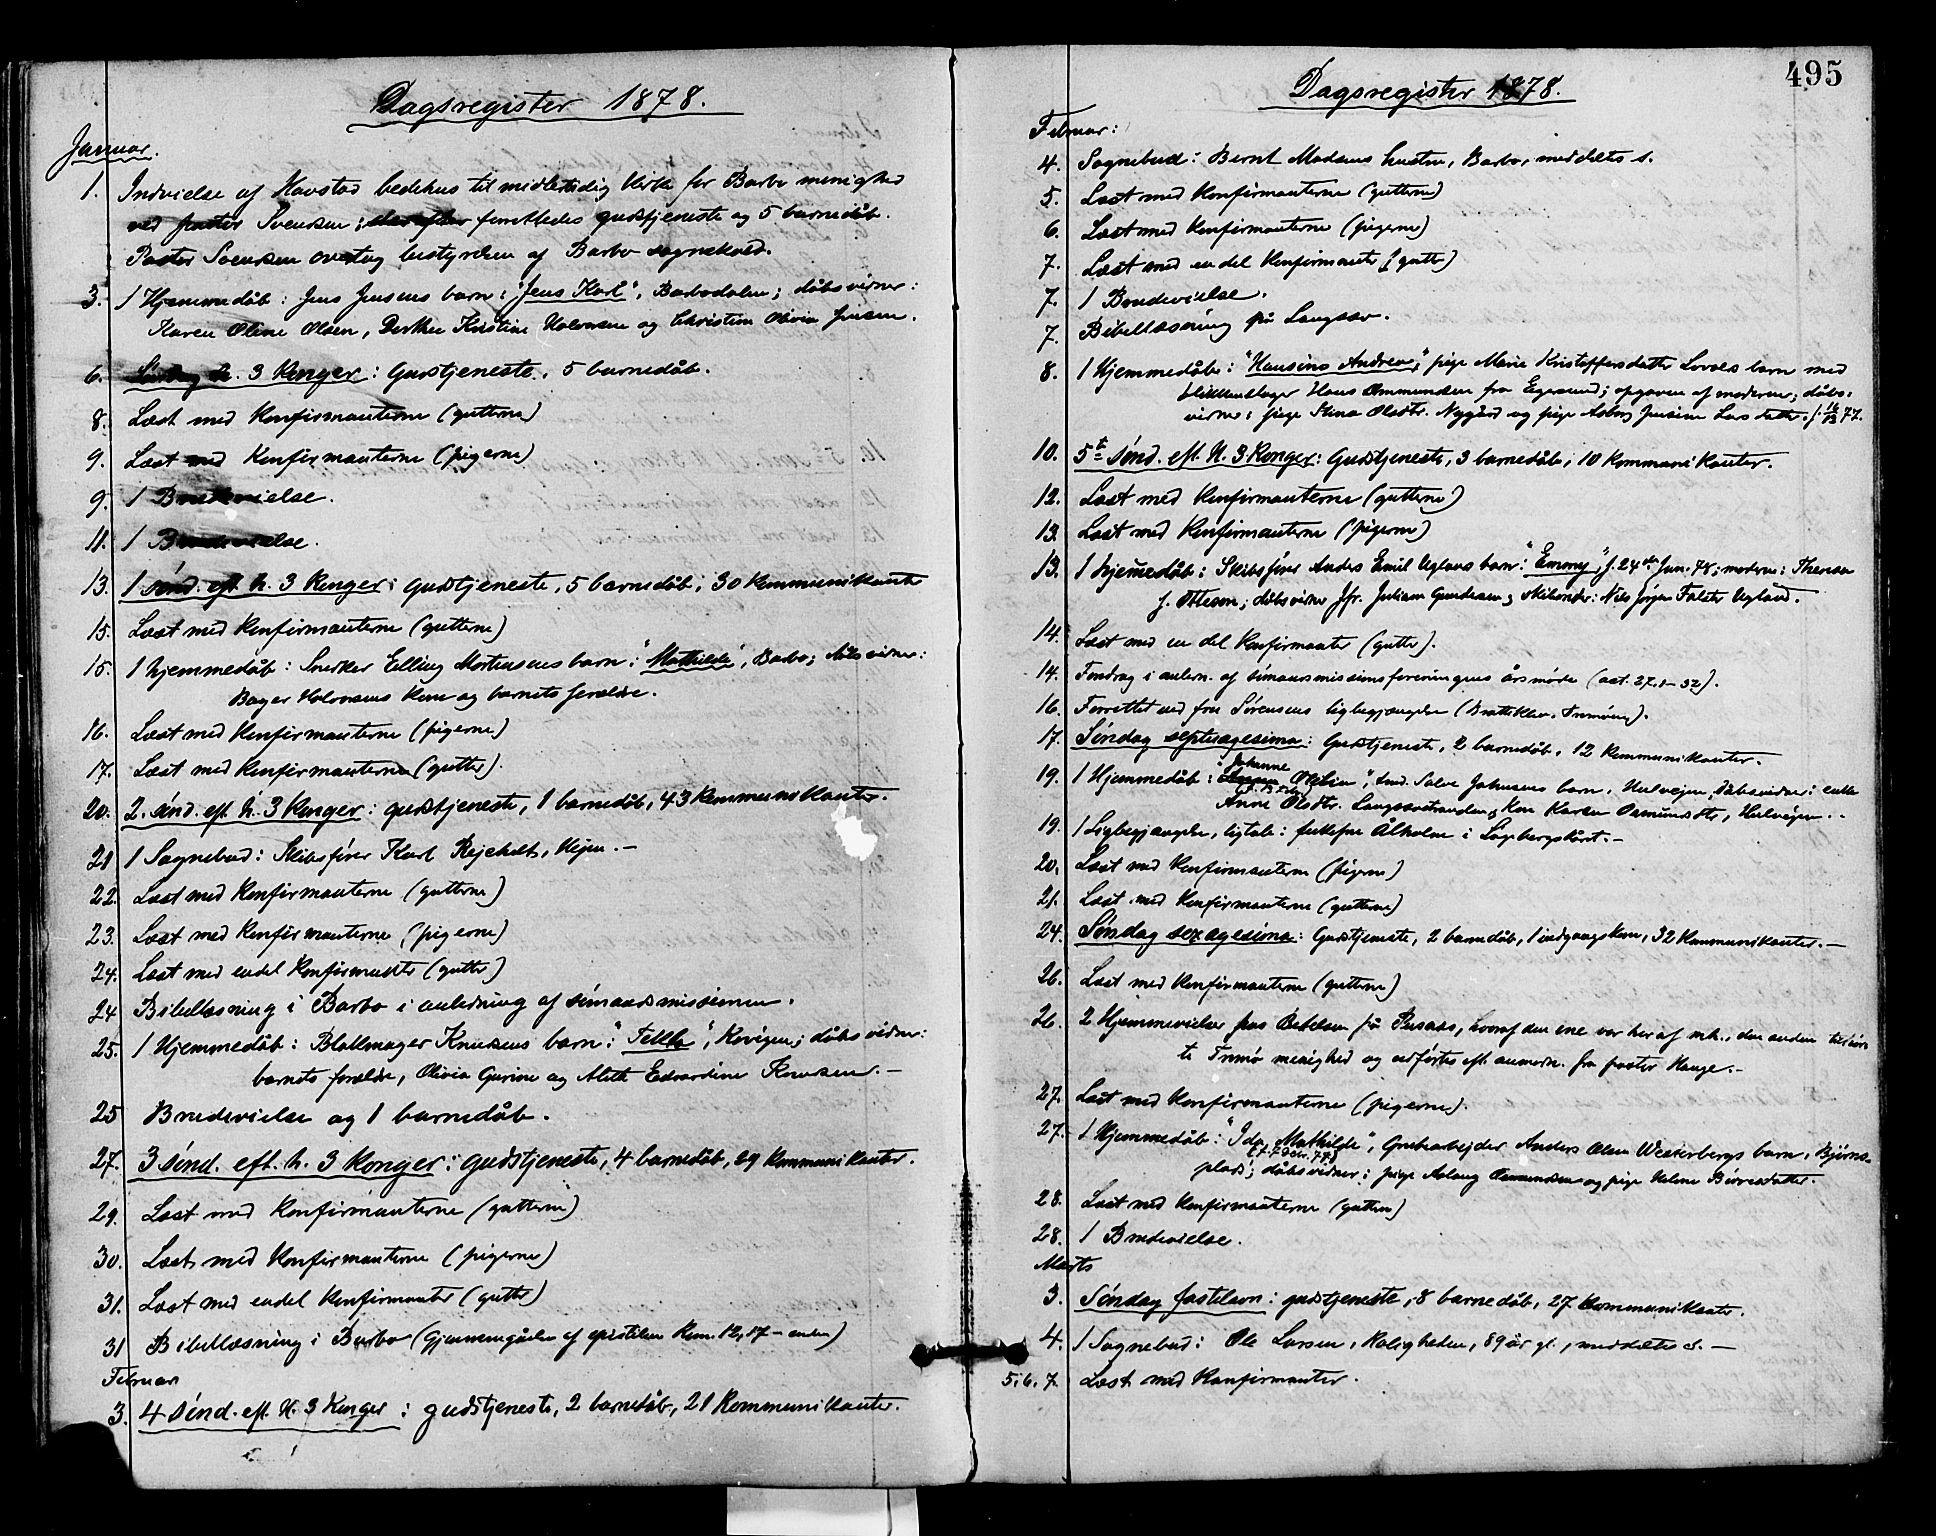 Dagsregister 1878.
Januar.
1. Indvielse af Havstad bedehus til midlertidig kirke for Barbo menighed
ved pastor Svensen; derefter forrettedes gudstjeneste og 5 barnedåb.
Pastor Svensen overtog bestyrelsen af Barbo sognekald.
3. 1 Hjemmedåb: Jens Jensens barn: "Jens Karl", Barbodalen; dåbsvidner:
Karen Oline Olsen, Dorthea Kristine Halvorsen og Christine Olivia Jensen.
6. Søndag h. 3 Konger: Gudstjeneste, 5 barnedåb.
8. Læst med Konfirmanterne (gutterne)
9. Læst med Konfirmanterne (pigerne)
9. 1 Brudevielse.
11. 1 Brudevielse.
13. 1 sønd. eft. h. 3 Konger: gudstjeneste, 5 barnedåb, 30 Kommunikanter
15. Læst med Konfirmanterne (gutterne)
15. 1 hjemmedåb: Snekker Elling Mortensens barn: "Mathilde", Barbo; dåbsvidner:
Bager Halvorsens Kone og barnets forældre.
16. Læst med Konfirmanterne (pigerne)
17. Læst med Konfirmanterne (gutter).
20. 2. sønd. eft. h. 3 Konger: gudstjeneste, 1 barnedåb, 43 Kommunikanter.
21 1 Sognebud: Skibsfører Karl, Vejen. –
22. Læst med Konfirmanterne (gutterne)
23. Læst med Konfirmanterne (pigerne)
24. Læst med endel Konfirmanter (gutter)
24 Bibellæsning i Barbo i anledning af sømandsmissionen.
25. 1 Hjemmedåb: Knudsens barn: "Tekla", dåbsvidner:
barnets forældre, Olivia Gurine og Aleth Edvardine Knudsen. –
25 Brudevielse og 1 barnedåb.
27. 3 sønd. eft. h. 3 Konger: gudstjeneste, 4 barnedåb, 29 Kommunikanter.
29. Læst med Konfirmanterne (gutterne)
30. Læst med Konfirmanterne (pigerne)
31. Læst med endel Konfirmanter (gutter)
31 Bibellæsning i Barbo (Gjennemgåelse af epistelen Rom. 12, 17 – enden)
Februar
3. 4 sønd. eft. H. 3 Konger: gudstjeneste, 2 barnedåb, 21 Kommunikanter.
Dagsregister 1878.
495
Februar:
4. Sognebud: Bernt Madsens hustru, Barbo, meddeltes s.
5. Læst med Konfirmanterne (gutterne)
6. Læst med Konfirmanterne (pigerne)
7. Læst med en del Konfirmanter (gutter)
7. 1 Brudevielse.
7. Bibellæsning på Langsæv.
8. 1 Hjemmedåb: "Hansine Andrea", pige Marie Kristoffersdatter barn med
Blikkenslager Hans Ommundsen fra Egersund; opgaven af moderen; dåbs-
vidner: pige Stina Olsdtr. Nygård og pige Jensine Larsdatter.
10. 5te sønd. eft. H. 3 Konger: Gudstjeneste, 3 barnedåb, 10 Kommunikanter.
12. Læst med Konfirmanterne (gutterne)
13. Læst med Konfirmanterne (pigerne)
13. 1 hjemmedåb: Skibsfører Anders Emil Uglands barn: "Emmy", f. 24de Jan. 78; moderen: Theresa
f. Ottesen; dåbsvidner Jfr. Juliane Gundersen og Nils Jørgen Falster Ugland.
14. Læst med en del Konfirmanter (gutter).
14. Foredrag i anledn. af sømandsmissionsforeningens årsmøde (act. 27, 1–32).
16. Forrettet ved fru Sørensens ligbegjængelse (Brattekleiv, Tromøen).
17. Søndag septuagesima: Gudstjeneste, 2 barnedåb, 12 Kommunikanter.
Johanne
19. 1 Hjemmedåb: Olelia", Salve Johnsens barn, dåbsvidner: enke
Anne Olsdtr. Langsævstranden, Kone Karen Osmundsdtr,
19. 1 Ligbegjængelse, ligtale: Ålholm i
20. Læst med Konfirmanterne (pigerne)
21. Læst med Konfirmanterne (gutterne)
24. Søndag sexagesima: Gudstjeneste, 2 barnedåb, 1 indgangskone, 32 Kommunikanter. –
26. Læst med Konfirmanterne (gutterne)
26. 2 Hjemmevielser hos på hvoraf den ene var her af mh., den anden tilhørte
Tromø menighed og udførtes eft. anmodn. fra pastor Hauge. –
27. Læst med Konfirmanterne (pigerne).
27. 1 Hjemmedåb: "Ida Mathilde", Grubearbejder Anders Olsen Westerbergs barn, Bjørns-
plads; dåbsvidner: pige Aslaug og pige Helene
28. Læst med Konfirmanterne (gutterne)
28. 1 Brudevielse.
Marts
3. Søndag fastelavn: gudstjeneste, 8 barnedåb, 27 Kommunikanter.
4. 1 Sognebud: Ole Larsen, Koligheden, 89 år gl., meddeltes s. –
5. 6. 7. Læst med Konfirmanter.